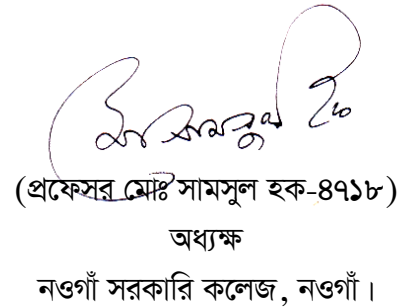 মোঃ সামসুল হক
(প্রফেসর মোঃ সামসুল হক-৪৭১৮)
অধ্যক্ষ
নওগাঁ সরকারি কলেজ, নওগাঁ।